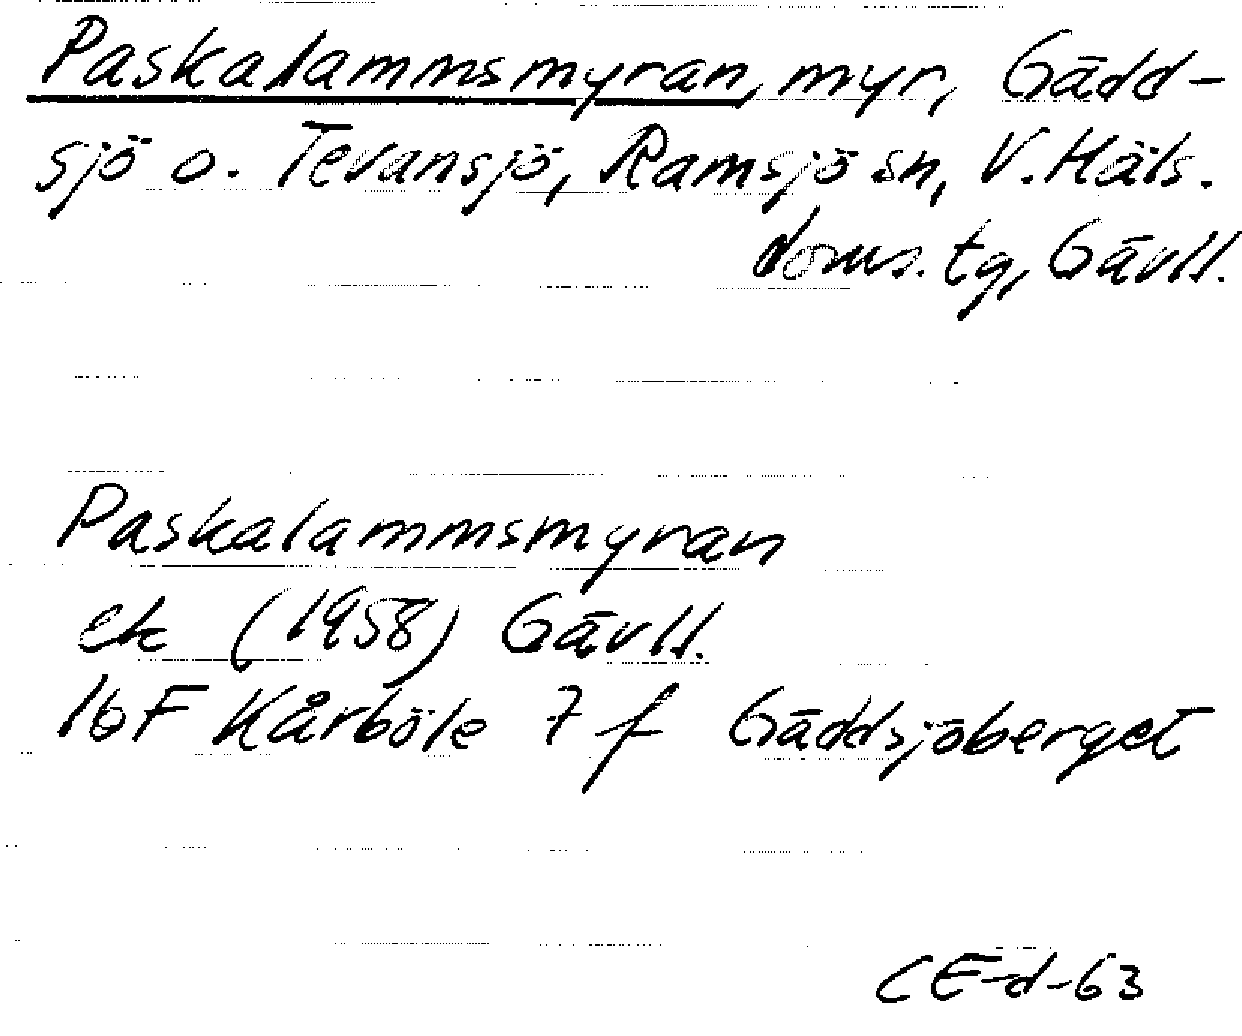 Paskalammsmyran, myr, Gädd-
sjö o. Tevansjö, Ramsjö sn, V. Häls.
doms. tg, Gävll.
Paskalammsmyran
ek (1958) Gävll.
16F Kårböle 7 f Gäddsjöberget
CE-d-63